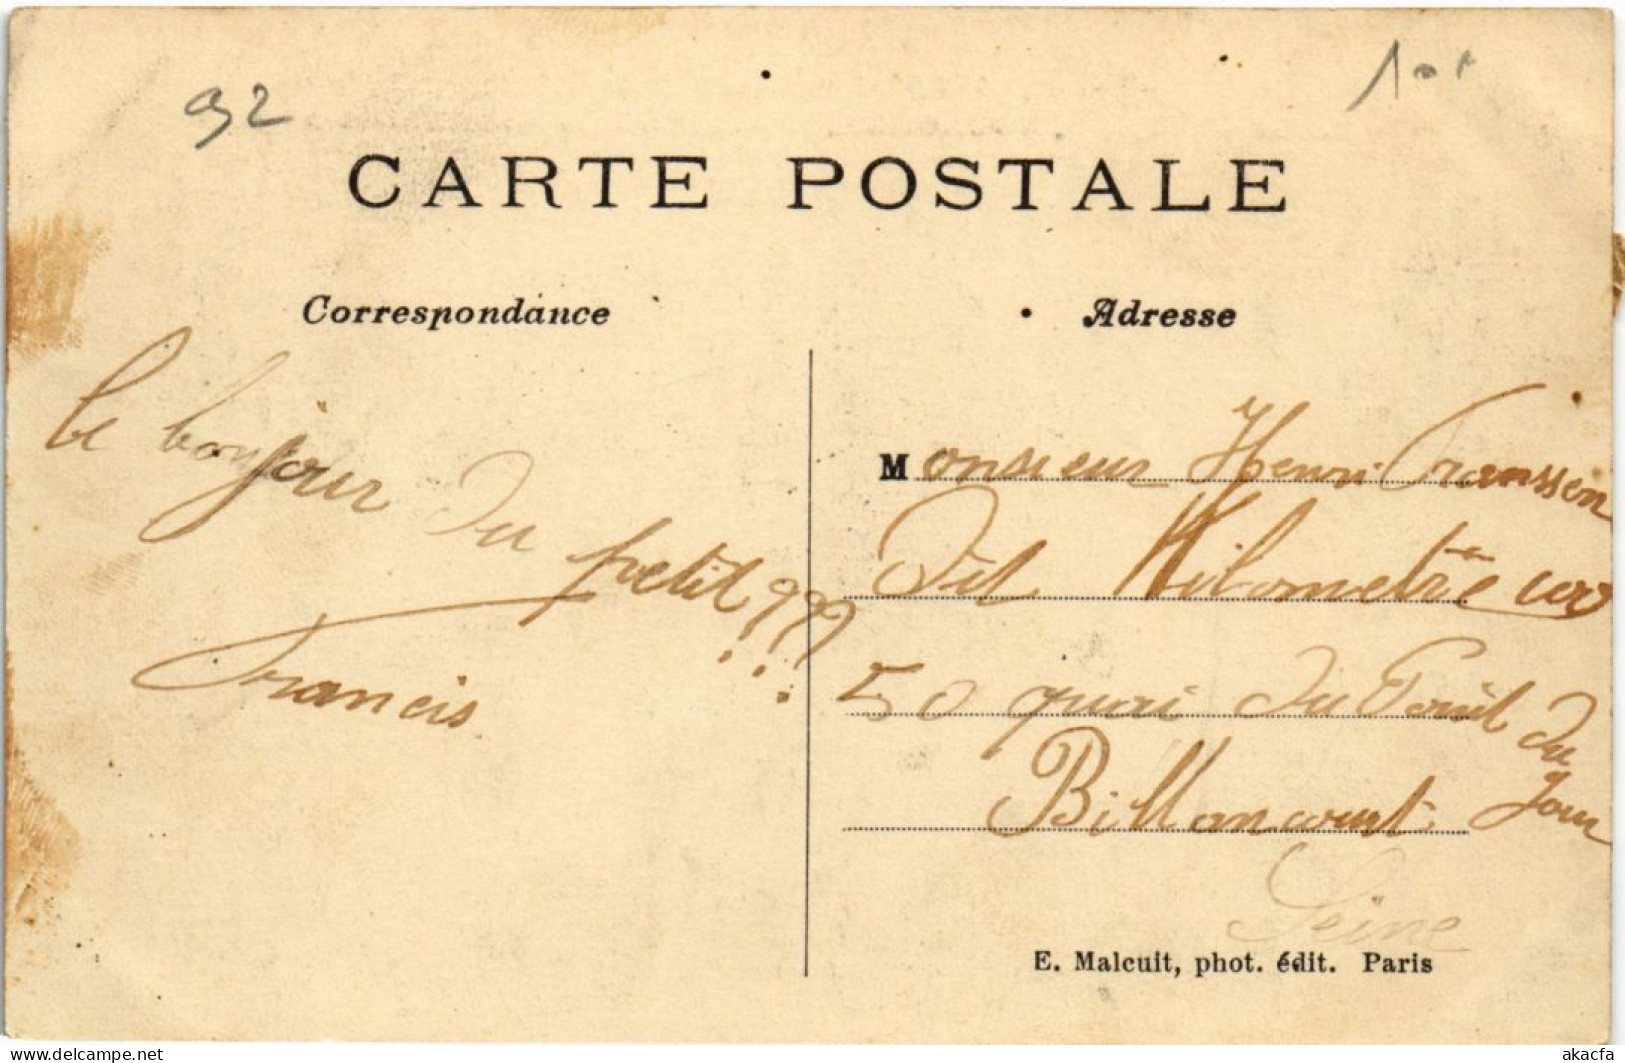 92
CARTE POSTALE
Correspondance
Adresse
le bonjour du petit ???
Francis.
Monsieur Henri Franssen
Dit Kilometre
50 quai du Point du
Jour
Billancourt
Seine
E. Malcuit, phot. édit. Paris
delcampe.net
akacfa